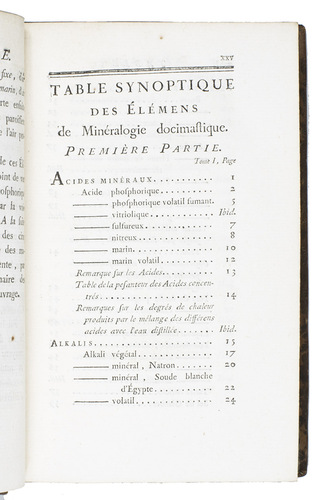 E.
fixe,
marin,
rte
l'air
de ces
de vue
A la
me de
ente,
naire des
uvrage.
XXV
TABLE SYNOPTIQUE
DES ÉLÉMENS
de Minéralogie docimastique.
PREMIÈRE PARTIE.
Tome I, Page
ACIDES MINÉRAUX. 1
Acide phosphorique. 2
—— phosphorique volatil fumant. 5
—— vitriolique Ibid.
—— sulfureux. 7
—— nitreux 8
—— marin. 10
—— marin volatil 12
Remarque sur les Acides. 13
Table de la pesanteur des Acides concen-
trés. 14
Remarques sur les degrés de chaleur
produits par le mélange des différens
acides avec l'eau distillée. Ibid.
ALKALIS. 15
Alkali végétal. 17
—— minéral, Natron. 20
—— minéral, Soude blanche
d'Égypte 22
—— volatil. 24